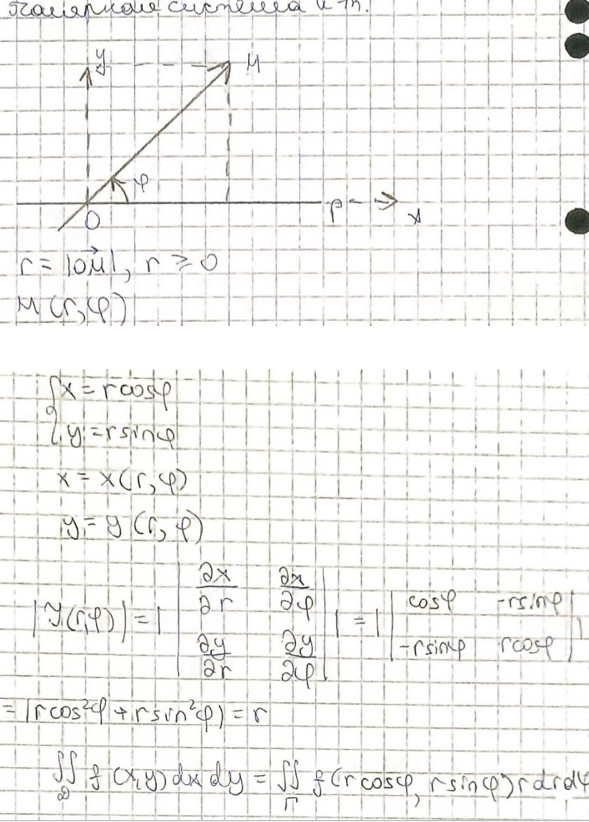 Полярная система к-т.
y M
φ
O P x
r = |OM⃗|, r ≥ 0
M(r,φ)
{x = rcosφ
{y = rsinφ
x = x(r,φ)
y = y(r,φ)
|J(r,φ)| = | |∂x/∂r ∂x/∂φ; ∂y/∂r ∂y/∂φ| | = | |cosφ -rsinφ; -rsinφ rcosφ| |
= |rcos²φ + rsin²φ| = r
∬_D f(x,y)dxdy = ∬_Γ f(rcosφ, rsinφ)rdrdφ